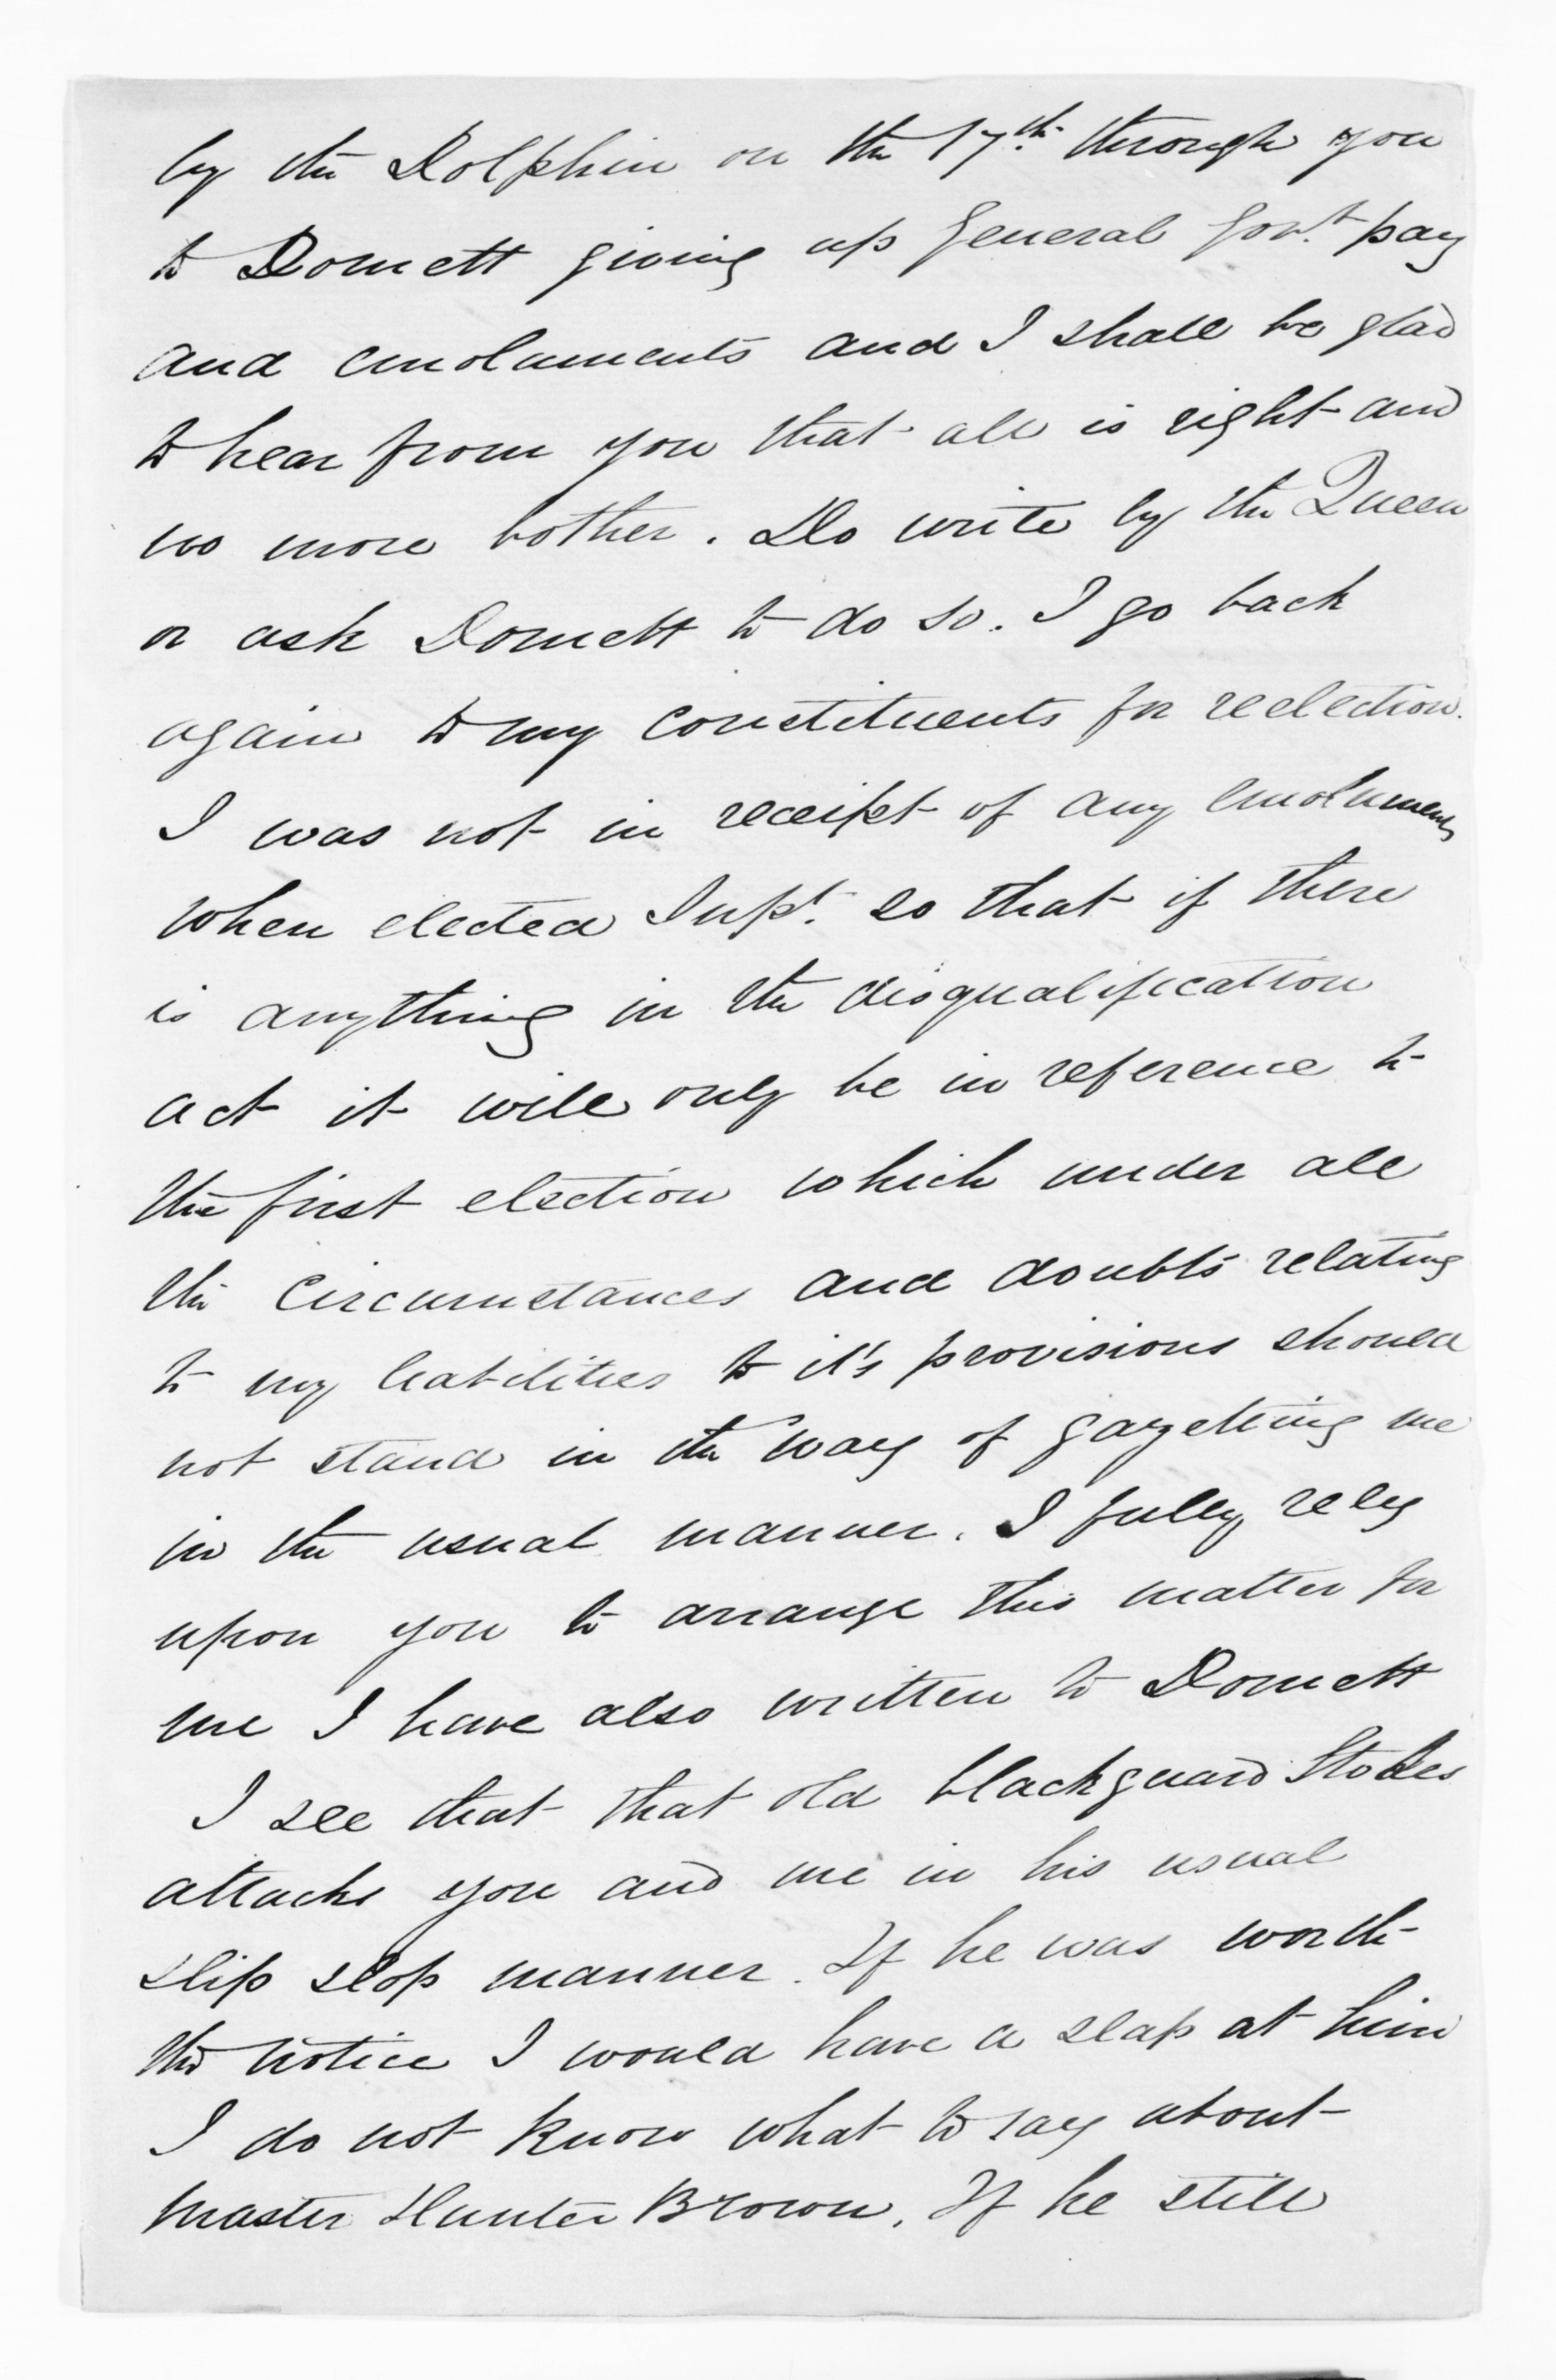 by the Dolphin on the 17th through you
to Domett giving up General Govt. pay
and emoluments and I shall be glad
to hear from you that all is right and
no more bother. Do write by the Queen
or ask Domett to do so. I go back
again to my constituents for reelection.
I was not in receipt of any emoluments
when elected Supt. so that if there
is anything in the disqualification
act it will only be in reference to
the first election which under all
the circumstances and doubts relating
to my liabilities to it's provisions should
not stand in the way of gazetting me
in the usual manner. I fully rely
upon you to arrange this matter for
me I have also written to Domett
I see that that old blackguard Stokes
attacks you and me in his usual
slip slop manner. If he was worth
the notice I would have a slap at him
I do not know what to say about
Master Hunter Brown. If he still